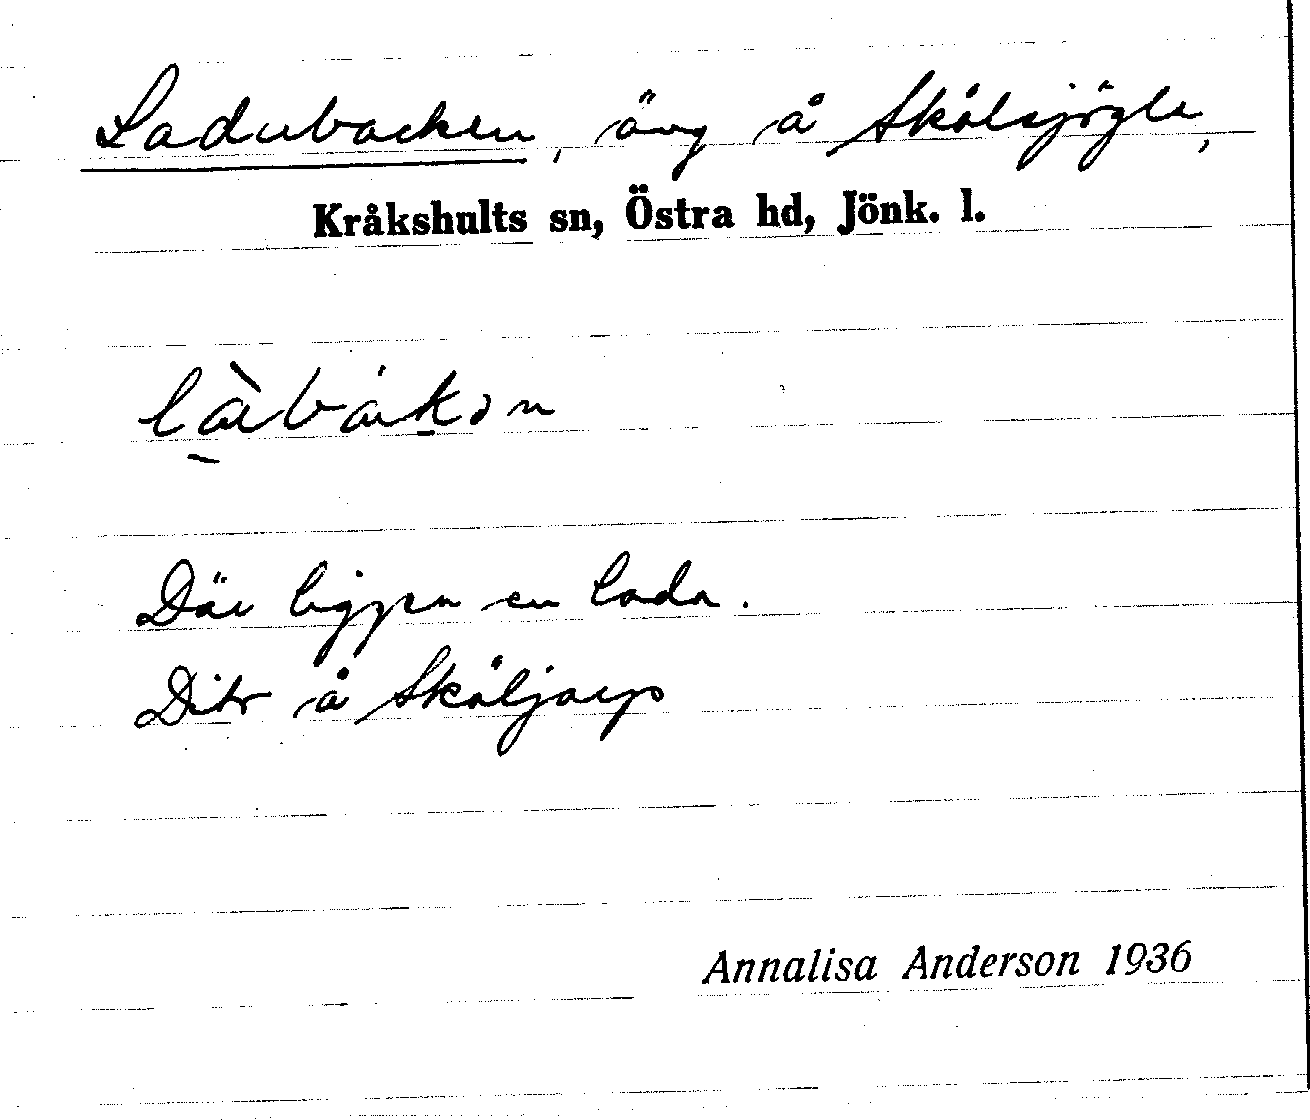 Ladubacken, äng å Skälsjögle,
Kråkshults sn, Östra hd, Jönk. l.
Där ligger en lada.
Dito å Skäljarp
Annalisa Anderson 1936